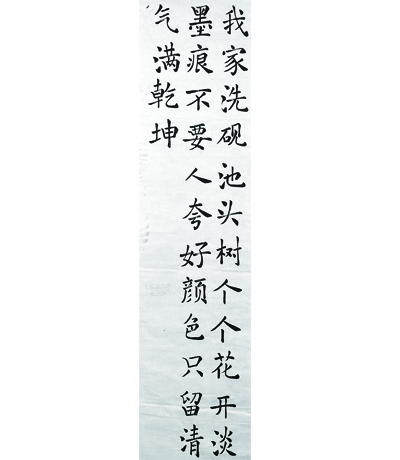 我家洗砚池头树个个花开淡
墨痕不要人夸好颜色只留清
气满乾坤